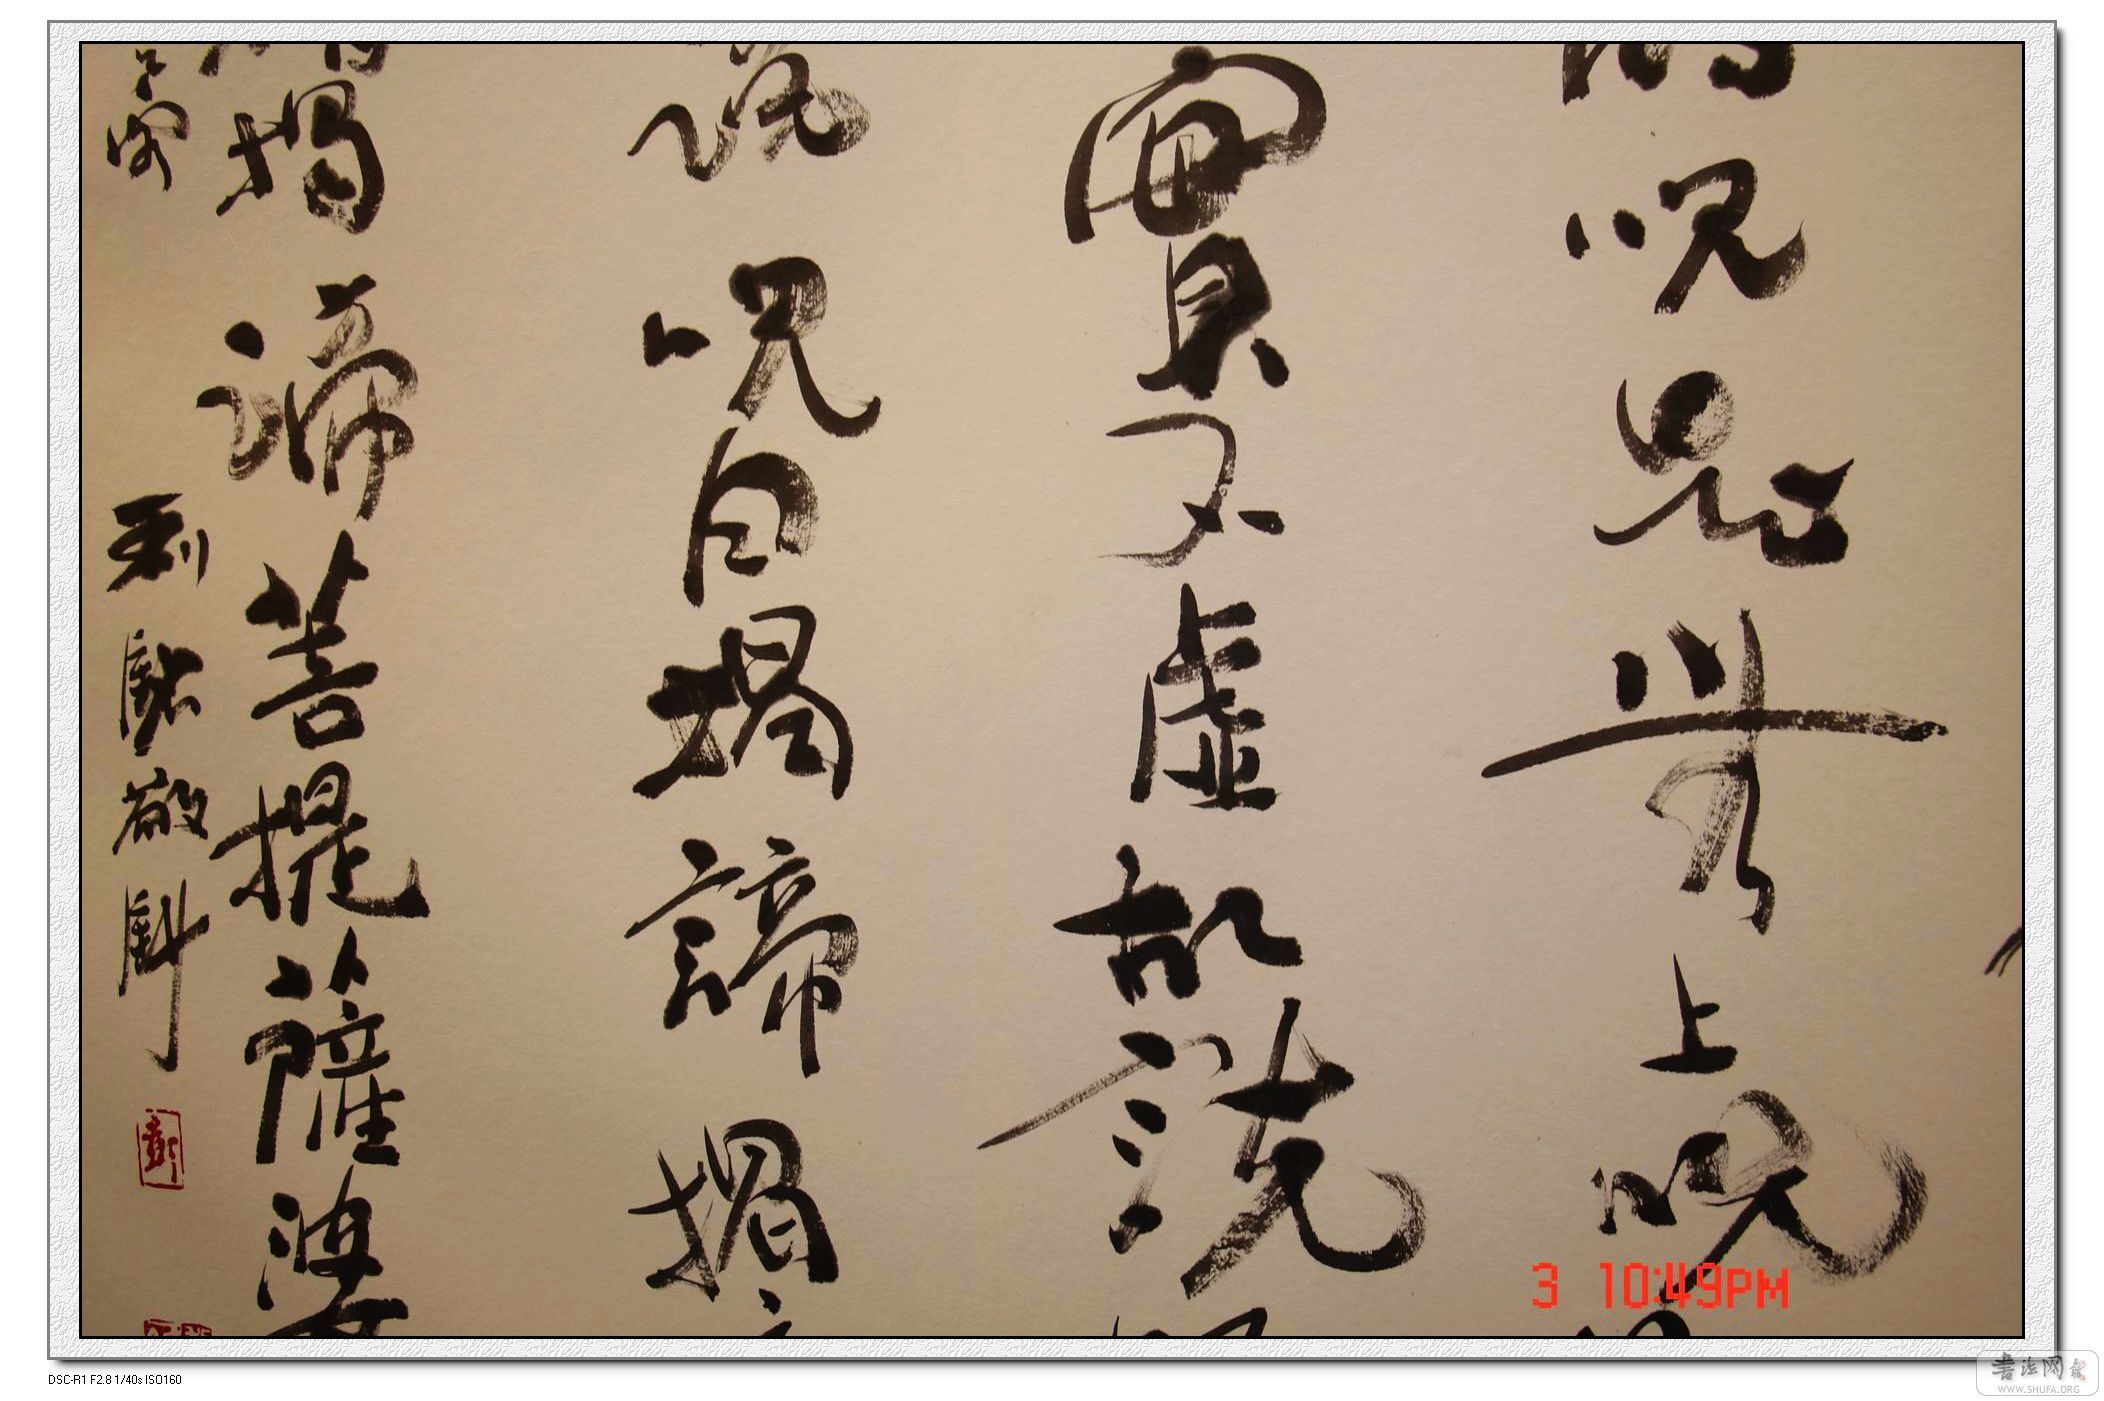 咒是無上咒
實不虛故說
說咒曰揭諦揭
揭諦菩提薩婆
利
敬
3 10:49PM
DSC-R1 F2.8 1/40s ISO160
书法网
WWW.SHUFA.ORG